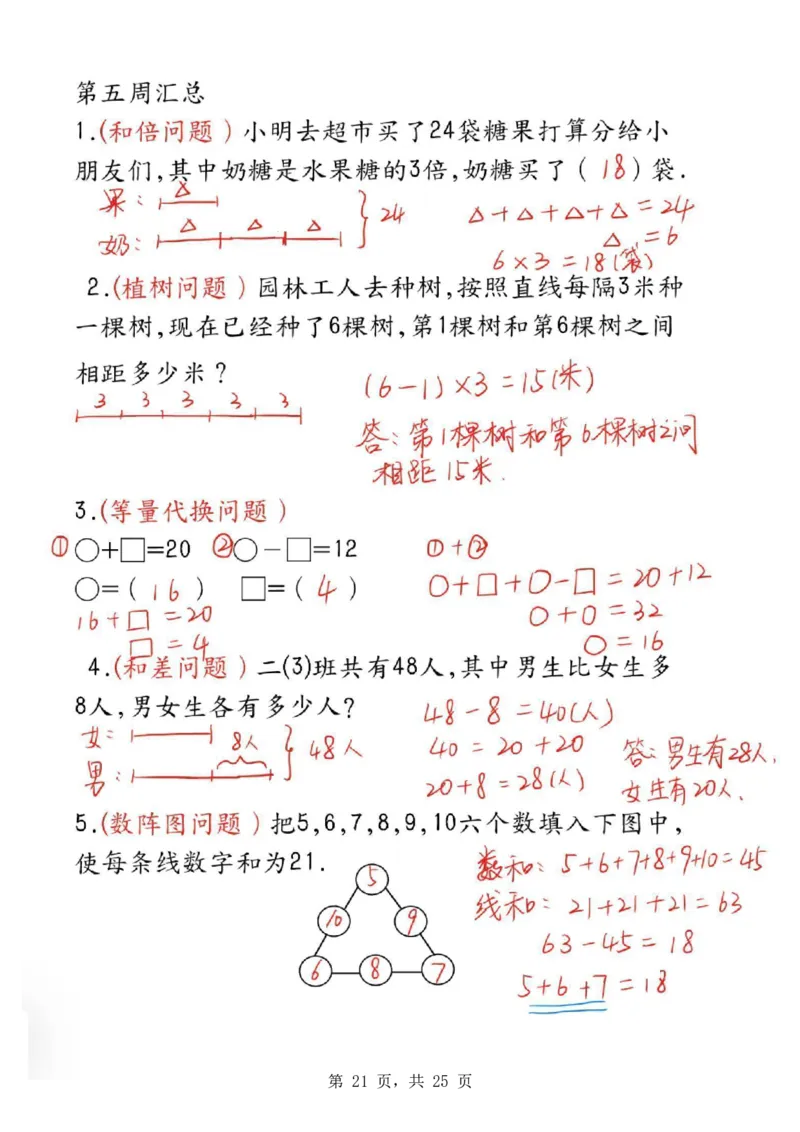 第五周汇总
1.(和倍问题)小明去超市买了24袋糖果打算分给小
朋友们,其中奶糖是水果糖的3倍,奶糖买了(18)袋.
果: △
奶: △ △ △ } 24
△+△+△+△=24
△=6
6×3=18(袋)
2.(植树问题)园林工人去种树,按照直线每隔3米种
一棵树,现在已经种了6棵树,第1棵树和第6棵树之间
相距多少米?
3 3 3 3 3
(6-1)×3=15(米)
答:第1棵树和第6棵树之间
相距15米.
3.(等量代换问题)
①○+□=20 ②○-□=12
○=(16) □=(4)
16+□=20
□=4
①+②
○+□+○-□=20+12
○+○=32
○=16
4.(和差问题)二(3)班共有48人,其中男生比女生多
8人,男女生各有多少人?
女:
男: 8人 } 48人
48-8=40(人)
40=20+20
20+8=28(人)
答:男生有28人,
女生有20人.
5.(数阵图问题)把5,6,7,8,9,10六个数填入下图中,
使每条线数字和为21.
5
10 9
6 8 7
数和: 5+6+7+8+9+10=45
线和: 21+21+21=63
63-45=18
5+6+7=18
第 21 页，共 25 页